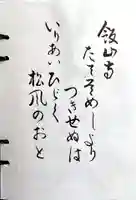 飯山寺
たちそめしより
つきせぬは
いりあいひゞく
松風のおと